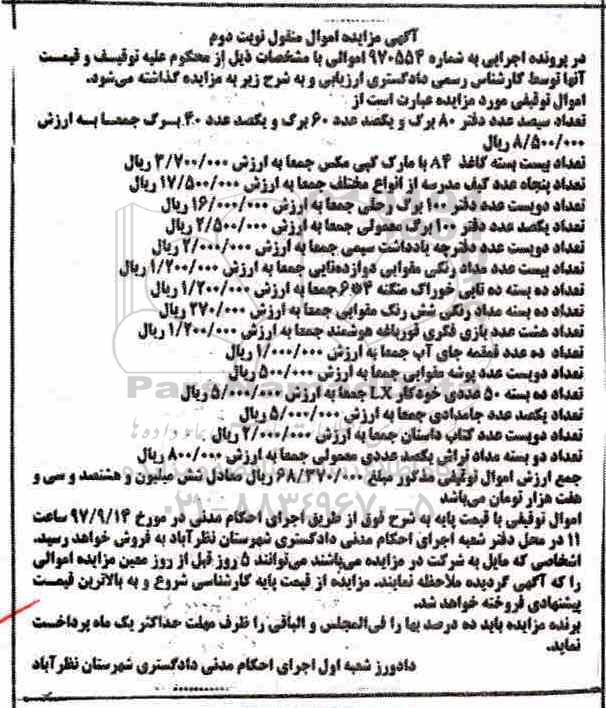 آگهی مزایده اموال منقول نوبت دوم
در پرونده اجرایی به شماره ۹۷۰۵۵۴ اموالی با مشخصات ذیل از محکوم علیه توقیف و قیمت
آنها توسط کارشناس رسمی دادگستری ارزیابی و به شرح زیر به مزایده گذاشته می‌شود.
اموال توقیفی مورد مزایده عبارت است از
تعداد سیصد عدد دفتر ۸۰ برگ و یکصد عدد ۶۰ برگ و یکصد عدد ۴۰ برگ جمعا به ارزش
۸/۵۰۰/۰۰۰ ریال
تعداد بیست بسته کاغذ A۴ با مارک کپی مکس جمعا به ارزش ۳/۷۰۰/۰۰۰ ریال
تعداد پنجاه عدد کیف مدرسه از انواع مختلف جمعا به ارزش ۱۷/۵۰۰/۰۰۰ ریال
تعداد دویست عدد دفتر ۱۰۰ برگ جلی جمعا به ارزش ۱۶/۰۰۰/۰۰۰ ریال
تعداد یکصد عدد دفتر ۱۰۰ برگ معمولی جمعا به ارزش ۲/۵۰۰/۰۰۰ ریال
تعداد دویست عدد دفترچه یادداشت سیمی جمعا به ارزش ۲/۰۰۰/۰۰۰ ریال
تعداد بیست عدد مداد رنگی مقوایی دوازده‌تایی جمعا به ارزش ۱/۲۰۰/۰۰۰ ریال
تعداد ده بسته ده تایی خوراک منگنه ۴*۶ جمعا به ارزش ۱/۲۰۰/۰۰۰ ریال
تعداد ده بسته مداد رنگی شش رنگ مقوایی جمعا به ارزش ۲۷۰/۰۰۰ ریال
تعداد هشت عدد بازی فکری قورباغه هوشمند جمعا به ارزش ۱/۲۰۰/۰۰۰ ریال
تعداد ده عدد قمقمه جای آب جمعا به ارزش ۱/۰۰۰/۰۰۰ ریال
تعداد دویست عدد پوشه مقوایی جمعا به ارزش ۵۰۰/۰۰۰ ریال
تعداد ده بسته ۵۰ عددی خودکار LX جمعا به ارزش ۵/۰۰۰/۰۰۰ ریال
تعداد یکصد عدد جامدادی جمعا به ارزش ۵/۰۰۰/۰۰۰ ریال
تعداد دویست عدد کتاب داستان جمعا به ارزش ۲/۰۰۰/۰۰۰ ریال
تعداد دو بسته مداد تراش یکصد عددی معمولی جمعا به ارزش ۸۰۰/۰۰۰ ریال
جمع ارزش اموال توقیفی مذکور مبلغ ۶۸/۳۷۰/۰۰۰ ریال معادل شش میلیون و هشتصد و سی و
هفت هزار تومان می‌باشد
اموال توقیفی با قیمت پایه به شرح فوق از طریق اجرای احکام مدنی در مورخ ۹۷/۹/۱۴ ساعت
۱۱ در محل دفتر شعبه اجرای احکام مدنی دادگستری شهرستان نظرآباد به فروش خواهد رسید.
اشخاصی که مایل به شرکت در مزایده می‌باشند می‌توانند ۵ روز قبل از روز معین مزایده اموالی
را که آگهی گردیده ملاحظه نمایند. مزایده از قیمت پایه کارشناسی شروع و به بالاترین قیمت
پیشنهادی فروخته خواهد شد.
برنده مزایده باید ده درصد بها را فی‌المجلس و الباقی را ظرف مهلت حداکثر یک ماه پرداخت
نماید.
دادورز شعبه اول اجرای احکام مدنی دادگستری شهرستان نظرآباد
ParsNamadData
۰۲۱-۸۸۳۴۹۶۷۰-۵